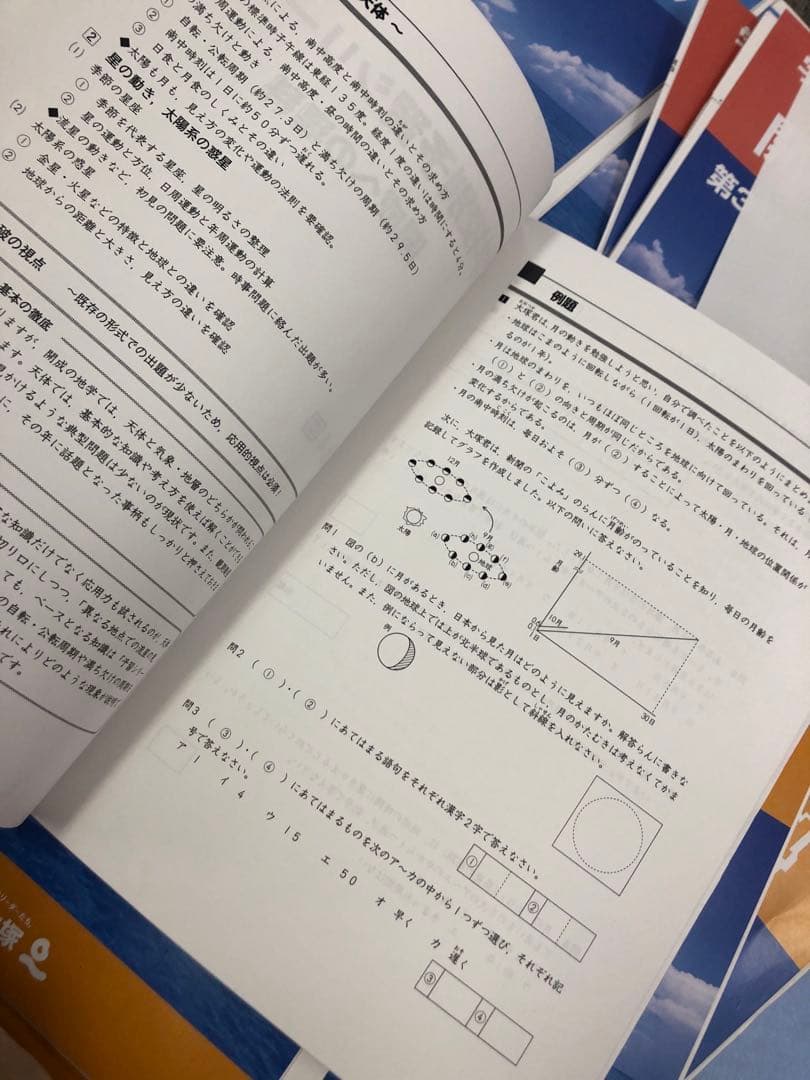 天体～
の標準時子午線は東経１３５度。経度１度の違いは時間にすると４分。
南中高度と南中時刻の違いとその求め方
南中高度・昼の時間の違いとその求め方
③ 自転・公転周期（約２７.３日）と満ち欠けの周期（約２９.５日）
② 南中時刻は１日に約５０分ずつ遅れる。
③ 日食と月食のしくみとその違い
◆太陽も月も、見え方の変化や運動の法則を要確認。
２ 星の動き，太陽系の惑星
(1) 季節の星座
① 季節を代表する星座、星の明るさの整理
② 星の運動と方位、日周運動と年周運動の計算
◆流星の動きなど、初見の問題に要注意。時事問題に絡んだ出題が多い。
(2) 太陽系の惑星
① 金星・火星などの特徴と地球との違いを確認
② 地球からの距離と大きさ、見え方の違いを確認
破の視点 ～既存の形式での出題が少ないため，応用的視点は必須！
基本の徹底
りますが、開成の地学では、天体と気象・地層のどちらかが問われ
ます。天体では、基本的な知識や考え方を使えば解くことができ
見かけるような典型問題は少ないのが現状です。また、
に、その年に話題となった事柄もしっかりと押さえておき
な知識だけでなく応用力も試されるのが、
切り口にしつつ、「異なる地点での
ても、ベースとなる知識は「予習シリ
の自転・公転周期や満ち欠けの周期
れによりどのような現象が
です。
例題
１ 大塚君は、月の動きを勉強しようと思い、自分で調べたことを以下のようにまと
・地球はこまのように回転しながら（１回転が１日）、太陽のまわりを回っている
るのが１年）。
・月は地球のまわりを、いつもほぼ同じところを地球に向けて回っている。それは、月
（①）と（②）の向きと周期が同じだからである。
・月の満ち欠けが起こるのは、月が（②）することによって太陽・月・地球の位置関係が
変化するからである。
・月の南中時刻は、毎日およそ（③）分ずつ（④）なる。
次に、大塚君は、新聞の「こよみ」のらんに月齢がのっていることを知り、毎日の月齢を
記録してグラフを作成しました。以下の問いに答えなさい。
12月
9月
太陽
地球
(a)
(b)
(c)
(d)
(e)
(f)
(g)
(h)
29
月齢
0
1日
10月
9月
30日
問１ 図の（b）に月があるとき、日本から見た月はどのように見えますか。解答らんに書きな
さい。ただし、図の地球上では上が北半球であるものとし、月のかたむきは考えなくてかま
いません。また、例にならって見えない部分は影として斜線を入れなさい。
例
問２ （①）・（②）にあてはまる語句をそれぞれ漢字２字で答えなさい。
①
②
問３ （③）・（④）にあてはまるものを次のア～カの中から１つずつ選び、それぞれ記
号で答えなさい。
ア １ イ ４ ウ １５ エ ５０ オ 早く カ 遅く
③
④
第3
塚